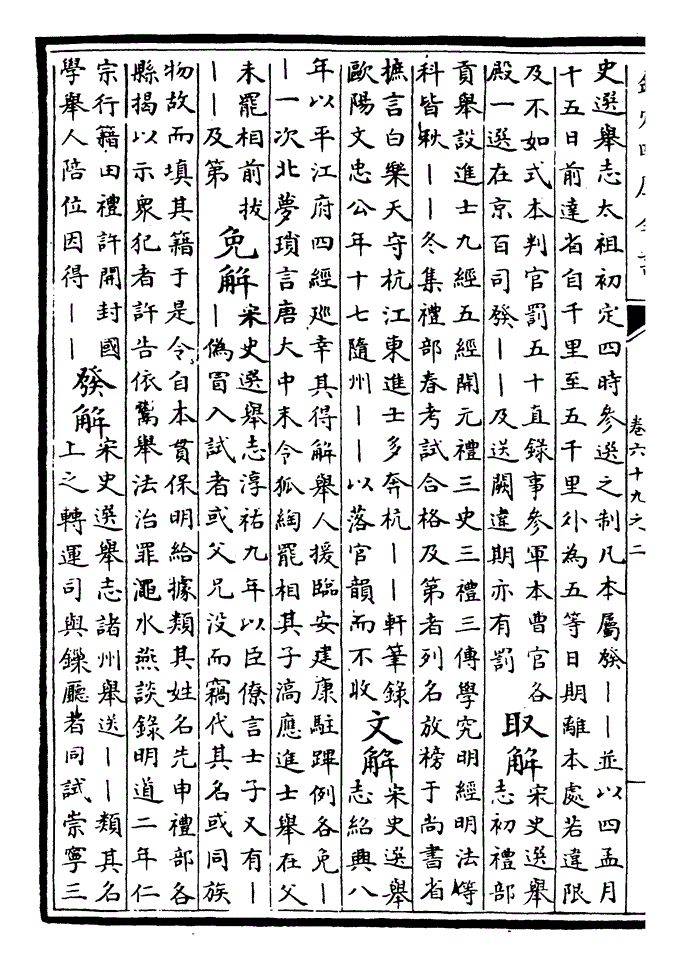 卷六十九之二
史選舉志太祖初定四時參選之制凡本屬發——並以四孟月
十五日前達省自千里至五千里外為五等日期離本處若違限
及不如式本判官罰五十直錄事參軍本曹官各
殿一選在京百司發——及送闕違期亦有罰
取解
宋史選舉
志初禮部
貢舉設進士九經五經開元禮三史三禮三傳學究明經明法等
科皆秋——冬集禮部春考試合格及第者列名放榜于尚書省
摭言白樂天守杭江東進士多奔杭——軒筆錄
歐陽文忠公年十七隨州——以落官韻而不收
文解
宋史選舉
志紹興八
年以平江府四經廵幸其得解舉人援臨安建康駐蹕例各免—
—一次北夢瑣言唐大中末令狐綯罷相其子滈應進士舉在父
未罷相前拔
——及第
免解
宋史選舉志淳祐九年以臣僚言士子又有—
—偽冒入試者或父兄没而竊代其名或同族
物故而填其籍于是令自本貫保明給據類其姓名先申禮部各
縣揭以示衆犯者許告依鬻舉法治罪澠水燕談錄明道二年仁
宗行籍田禮許開封國
學舉人陪位因得——
發解
宋史選舉志諸州舉送——類其名
上之轉運司與鏁廳者同試崇寧三